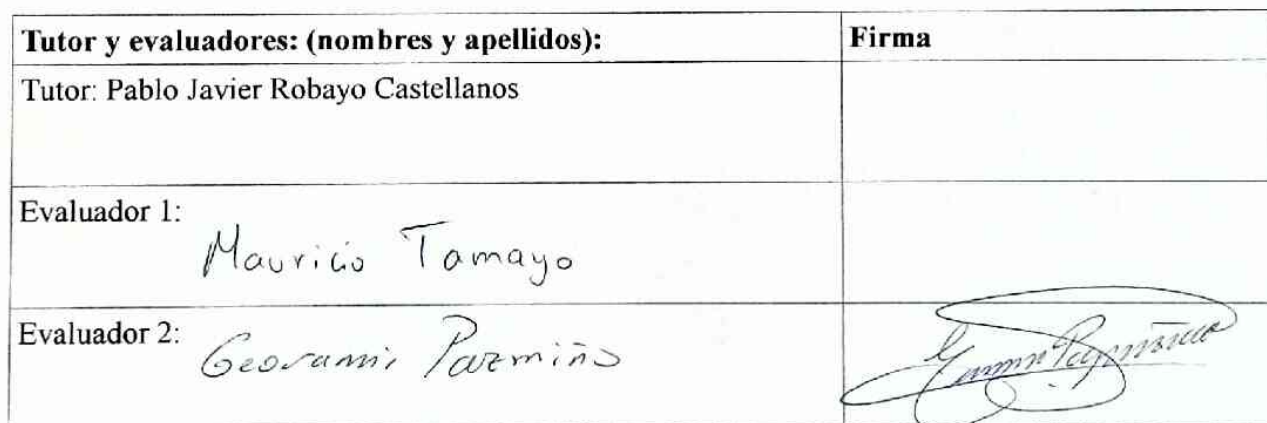 Tutor y evaluadores: (nombres y apellidos): Firma
Tutor: Pablo Javier Robayo Castellanos
Evaluador 1:
Mauricio Tamayo
Evaluador 2:
Geovanni Pazmiño